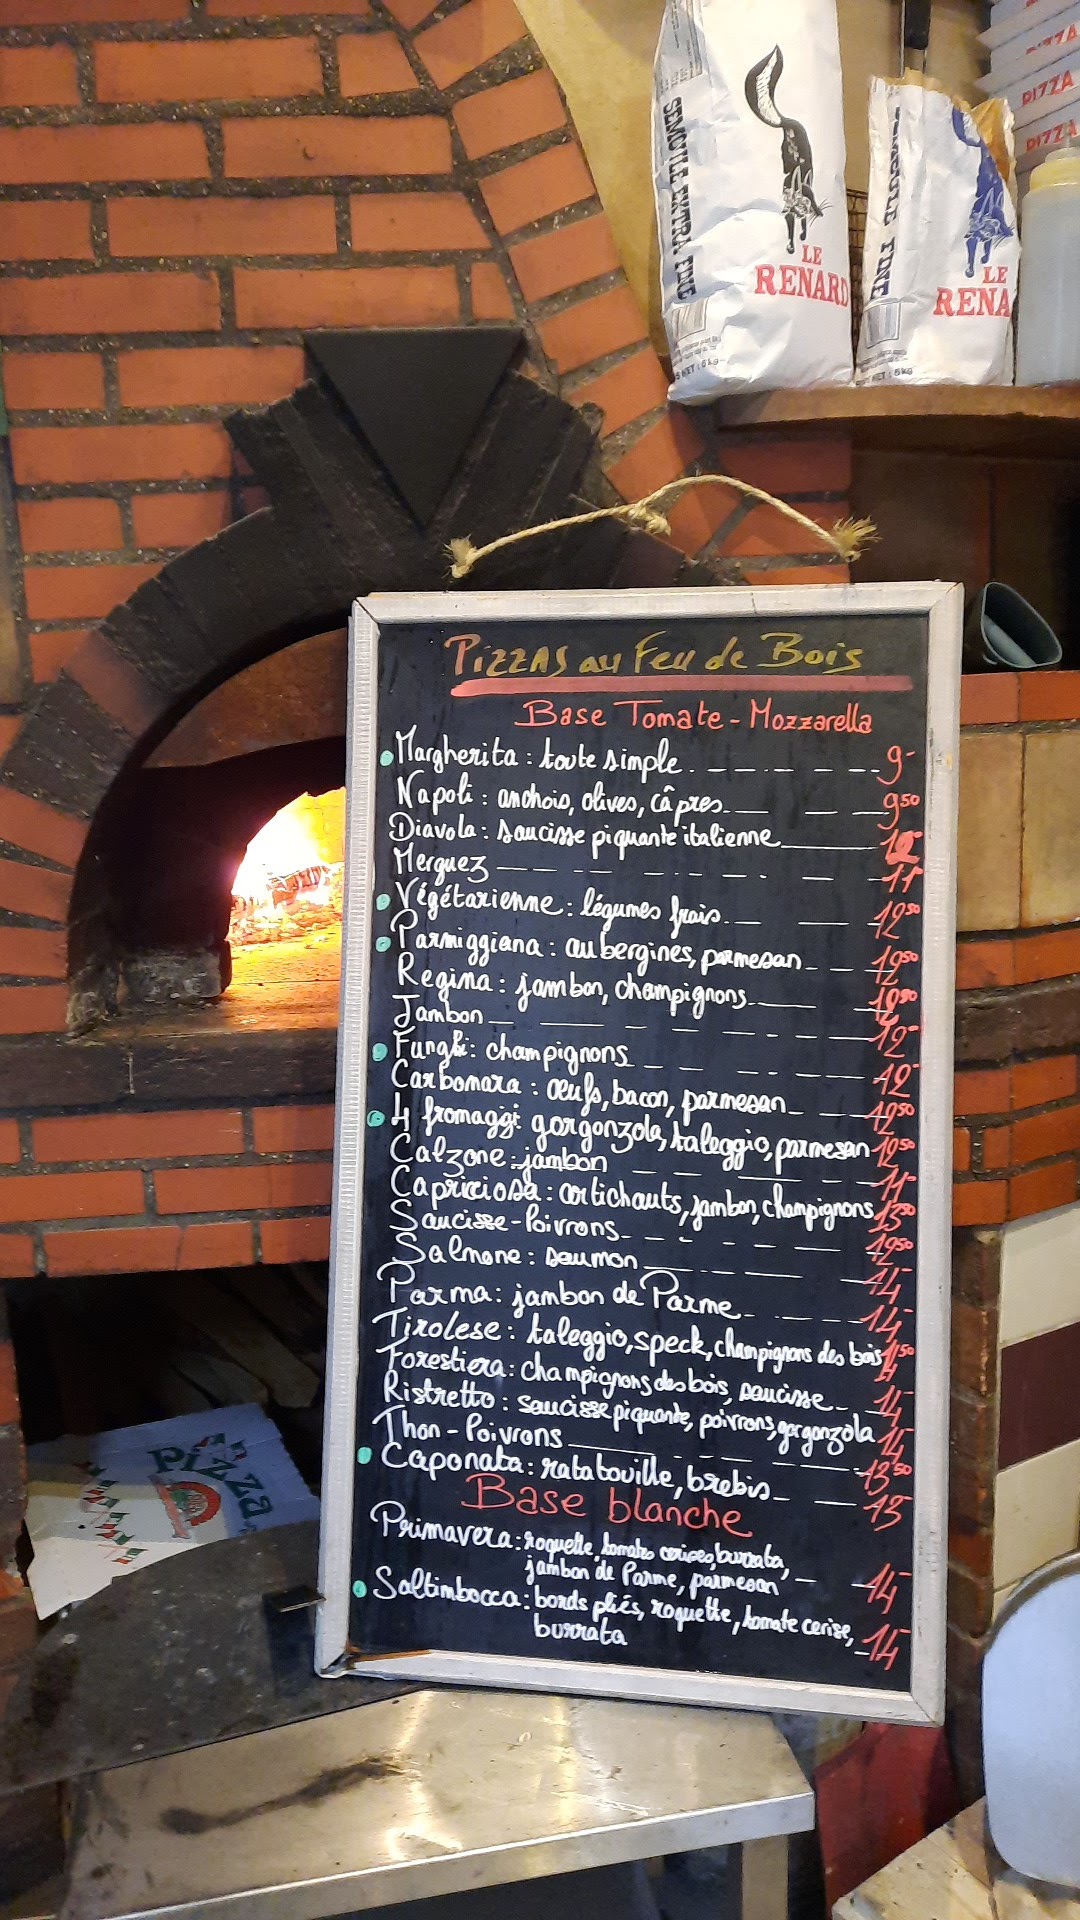 PIZZA
PIZZA
PIZZA
SEMOULE EXTRA FINE
LE
RENARD
NET : 5kg
SEMOULE FINE
LE
RENA
NET : 5kg
PIZZAS au Feu de Bois
Base Tomate - Mozzarella
Margherita : toute simple 9-
Napoli : anchois, olives, câpres 9 50
Diavola : saucisse piquante italienne 12-
Merguez 11-
Végétarienne : légumes frais 12 50
Parmiggiana : aubergines, parmesan 12 50
Regina : jambon, champignons 12 50
Jambon 12-
Funghi : champignons 12-
Carbonara : œufs, bacon, parmesan 12 50
4 fromaggi : gorgonzola, taleggio, parmesan 12 50
Calzone : jambon 11-
Capricciosa : artichauts, jambon, champignons 13 50
Saucisse-Poivrons 12 50
Salmone : saumon 14-
Parma : jambon de Parme 14-
Tirolese : taleggio, speck, champignons des bois 14 50
Forestiera : champignons des bois, saucisse 14-
Ristretto : saucisse piquante, poivrons, gorgonzola 14-
Thon - Poivrons 13 50
Caponata : ratatouille, brebis 13-
Base blanche
Primavera : roquette, tomates cerises, burrata,
jambon de Parme, parmesan 14-
Saltimbocca : bords pliés, roquette, tomate cerise,
burrata 14-
Pizza